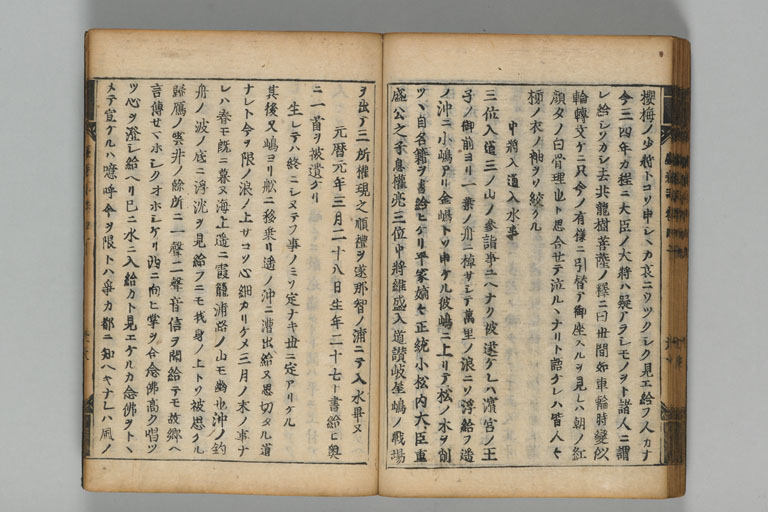 櫻梅ノ少将トコソ申シヽカ哀ニウツクシク見エ給フ人カナ
今三四年カ程ニ大臣ノ大将ハ疑アラシモノヲト諸人ニ謂
レ給シソカシ去共龍樹菩薩ノ釋ニ曰世間如車輪時變似
輪轉文ケニ只今ノ有様ニ引替テ御座スルヲ見レハ朝ノ紅
顔夕ノ白骨理也ト思合セテ泣ルヽナリト語ケレハ皆人々
柿ノ衣ノ袖ヲソ絞ケル
中将入道入水事
三位入道三ノ山ノ参詣事ユヘナク被遂ケレハ濱宮ノ王
子ノ御前ヨリ一葉ノ舟ニ棹サシテ萬里ノ浪ニソ浮給フ遥
ノ沖ニ小嶋アリ金嶋トソ申ケル彼嶋ニ上リテ松ノ木ヲ削
ツヽ自名籍ヲ書給ヒケリ平家嫡々正統小松内大臣重
盛公之子息權亮三位中将維盛入道讃岐屋嶋ノ戰場
ヲ出テ三所權現之順禮ヲ遂那智ノ浦ニテ入水畢ヌ
元暦元年三月二十八日生年二十七ト書給ヒ奥
ニ一首ヲ被遺ケリ
生レテハ終ニシヌテフ事ノミソ定ナキ世ニ定アリケル
其後又嶋ヨリ舩ニ移乗リ遥ノ沖ニ漕出給ヌ思切タル道
ナレト今ヲ限ノ浪ノ上サコソ心細カリケメ三月ノ末ノ事ナ
レハ春モ既ニ暮ヌ海上遥ニ霞籠浦路ノ山モ幽也沖ノ釣
舟ノ波ノ底ニ浮沈ヲ見給フニモ我身ノ上トソ被思ケル
歸鴈ノ雲井ノ餘所ニ一聲二聲音信ヲ聞給テモ故郷ヘ
言傳セマホシクオホシケリ西ニ向ヒ掌ヲ合念佛高ク唱ツ
ツ心ヲ澄シ給ヘリ已ニ水ニ入給カト見エケルカ念佛ヲトヽ
メテ宣ケルハ噫呼今ヲ限トハ爭カ都ニ知ヘキナレハ風ノ